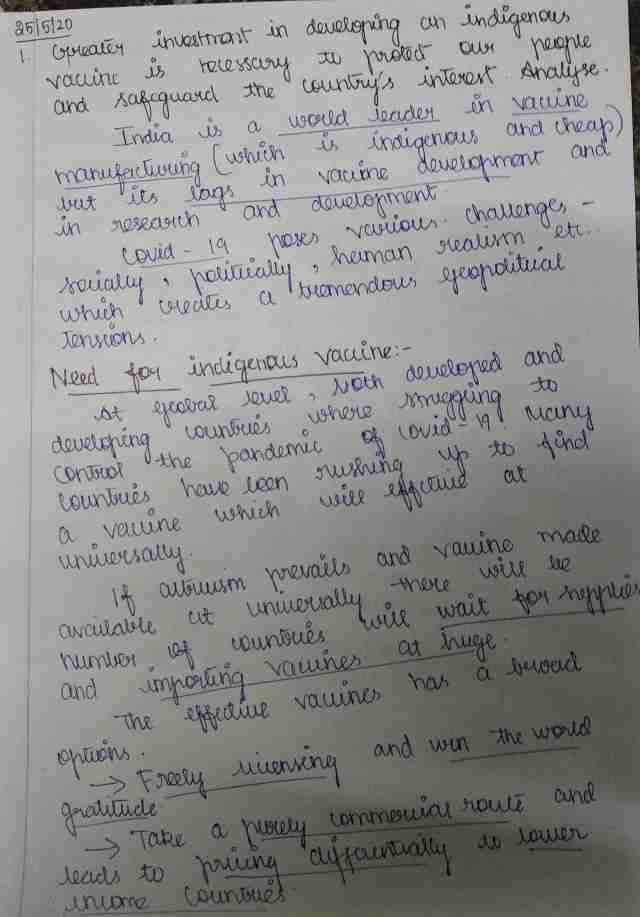 25/5/20
1. Greater investment in developing an indigenous
vaccine is necessary to protect our people
and safeguard the country's interest. Analyse.
India is a world leader in vaccine
manufacturing (which is indigenous and cheap)
but its lags in vaccine development and
in research and development
Covid-19 poses various challenges -
socially, politically, human realism etc..
which creates a tremendous geopolitical
tensions.
Need for indigenous vaccine:-
At global level, both developed and
developing countries where struggling to
control the pandemic of covid-19. Many
countries have been rushing up to find
a vaccine which will effective at
universally.
If altruism prevails and vaccine made
available at universally there will be
number of countries will wait for supplies
and importing vaccines at huge.
The effective vaccines has a broad
options.
→ Freely licensing and win the world
gratitude
→ Take a purely commercial route and
leads to pricing differentially to lower
income countries.